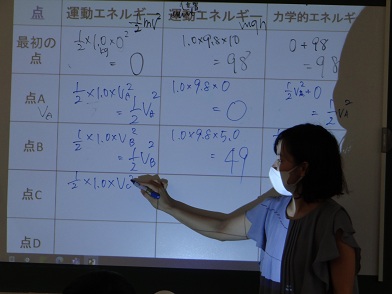 点 運動エネルギー ½mv² エネルギー mgh 力学的エネルギ
最初の点 ½×1.0×0² = 0 1.0×9.8×10 = 98 0+98 = 98
点A V_A ½×1.0×V_A² = ½V_A² 1.0×9.8×0 = 0 ½V_A²+0 = ½V_A²
点B ½×1.0×V_B² = ½V_B² 1.0×9.8×5.0 = 49
点C ½×1.0×V_C²
点D